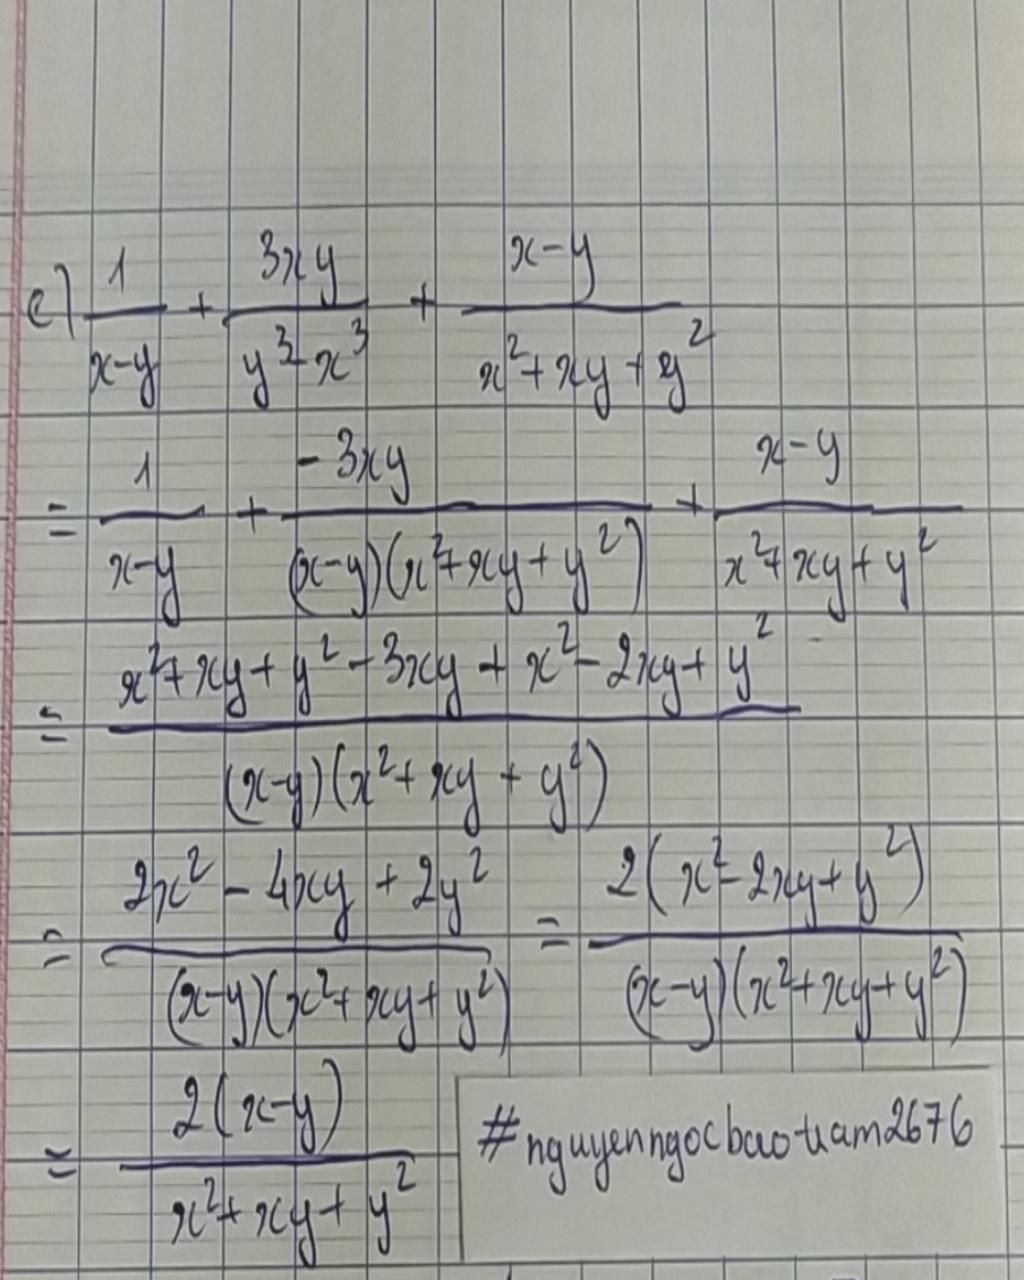 e) 1/(x-y) + 3xy/(y³-x³) + (x-y)/(x²+xy+y²)
= 1/(x-y) + -3xy/((x-y)(x²+xy+y²)) + (x-y)/(x²+xy+y²)
= (x²+xy+y²-3xy+x²-2xy+y²)/((x-y)(x²+xy+y²))
= (2x²-4xy+2y²)/((x-y)(x²+xy+y²)) = 2(x²-2xy+y²)/((x-y)(x²+xy+y²))
= 2(x-y)/(x²+xy+y²)
#nguyenngocbaotram2676